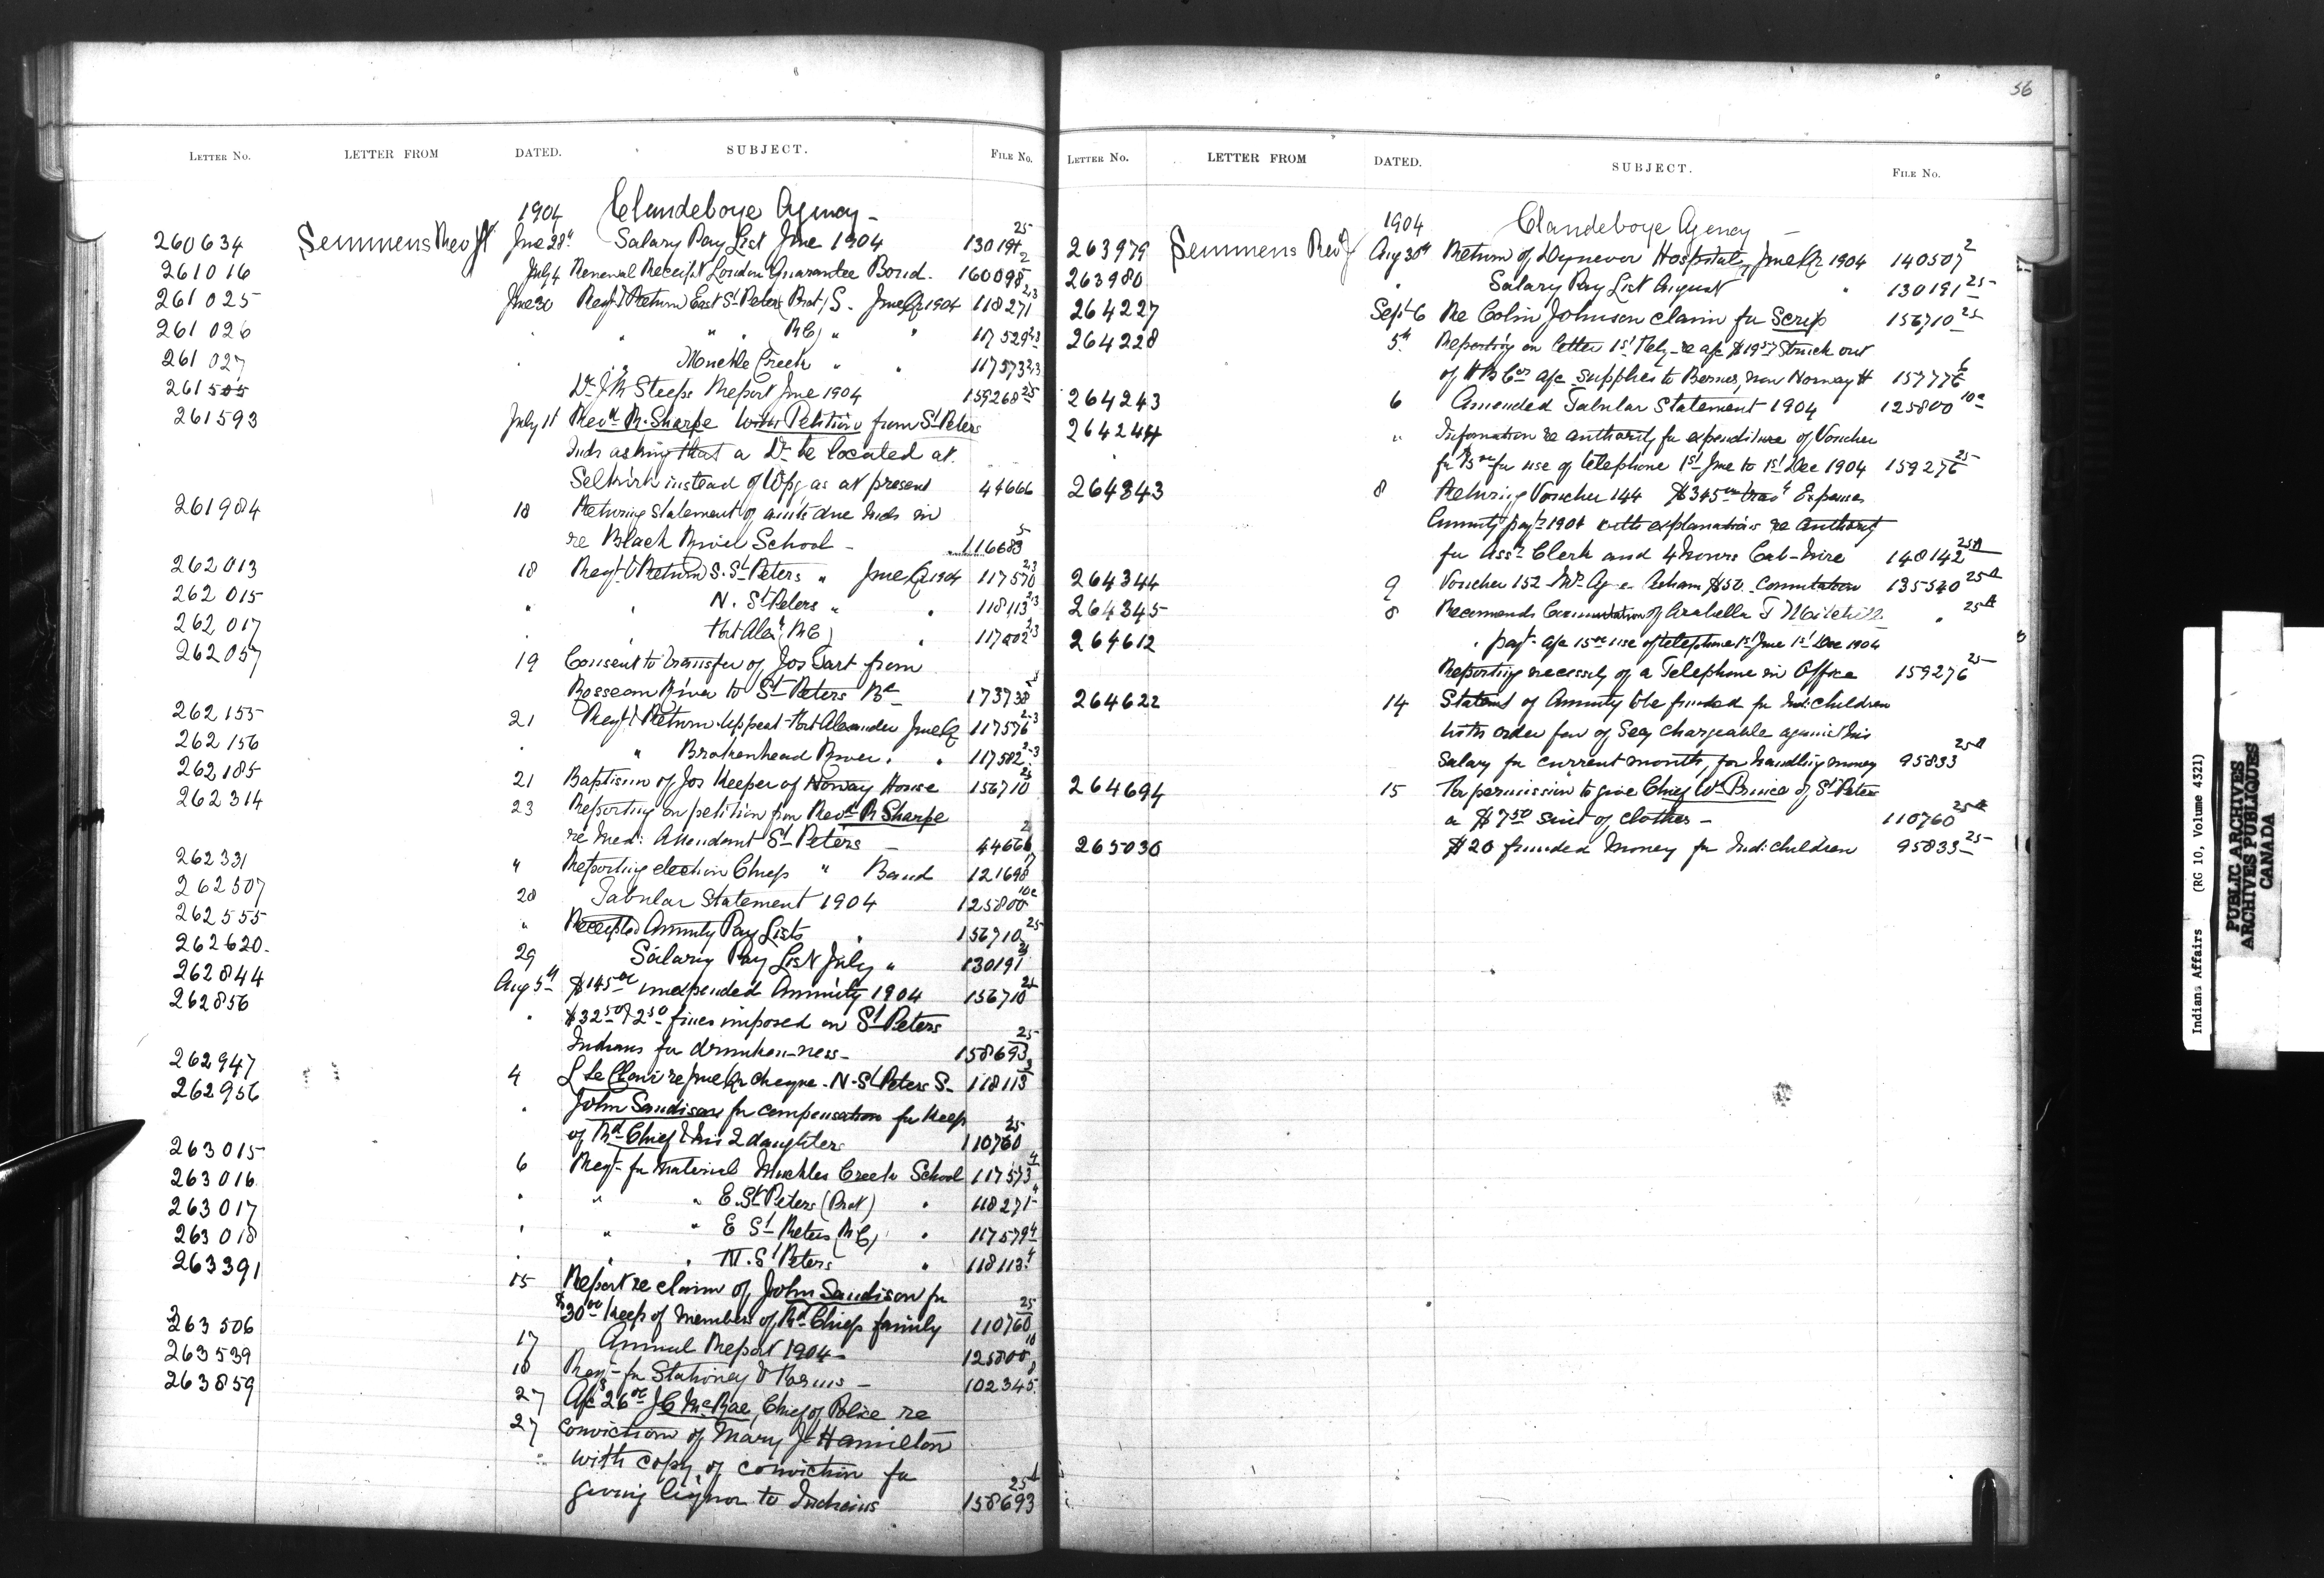 LETTER NO. LETTER FROM DATED. SUBJECT. FILE NO.
1904 Clandeboye Agency -
260634 Semmens Rev Jn June 28th Salary Pay List June 1904 130191 25
261016 July 4 Renewal Receipt London Guarantee Bond. 160098 2
261025 June 30 Reqt & Return East St Peters (Prot) S. June Qr 1904 118271 2,3
261026 " " " (RC) " " 117529 2,3
261027 " " Muckle Creek " " 117573 2,3
261505 Dr J R Steeps Report June 1904 159268 25
261593 July 11 Revd R. Sharpe with Petition from St Peters
Inds asking that a Dr be located at
Selkirk instead of Wpg as at present 44666
261984 18 Returning statement of amts due Inds in
re Black River School - 116683 5
262013 18 Reqt & Return S. St Peters " June Qr 1904 117570 2,3
262015 " " N. St Peters " " 118113 2,3
262017 " " Fort Alexr (RC) " 117802 2,3
262057 19 Consent to transfer of Jos Tart from
Rosseau River to St Peters Bd 173738
262155 21 Reqt & Return Upper Fort Alexander June Qr 117576 2-3
262156 " " Brokenhead River " " 117582 2-3
262185 21 Baptism of Jos Keeper of Norway House 156710 25
262314 23 Reporting on petition from Revd R Sharpe
re Med: Attendant St Peters - 44666 2
262331 " Reporting election Chiefs " Band 121698
262507 28 Tabular Statement 1904 125800 10c
262555 " Receipted Annuity Pay Lists " 156710 25
262620 29 Salary Pay List July " 130191 25
262844 Aug 5th $145.00 unexpended Annuity 1904 156710 25
262856 " $32.50 & 2.50 fines imposed on St Peters
Indians for drunken-ness - 158693 25
262947 4 L Le Clair re June Qr cheque - N. St Peters S. 118113 3
262956 " John Sandison for compensation for keep
of Rd Chief & his 2 daughters 110760 25
263015 6 Reqt for material Muckles Creek School 117573 4
263016 " " " E. St Peters (Prot) " 118271 4
263017 " " " E St Peters (RC) " 117579 4
263018 " " " N. St Peters " 118113 4
263391 15 Report re claim of John Sandison for
$30.00 keep of members of Rd Chiefs family 110760 25
263506 17 Annual Report 1904 - 125800 10
263539 18 Reqt for Stationery & Forms - 102345 8
263859 27 A/c $26.00 J C McRae, Chief of Police re
27 Conviction of Mary J Hamilton
with copy of conviction for
giving liquor to Indians 158693 25A
56
LETTER NO. LETTER FROM DATED. SUBJECT. FILE NO.
1904 Clandeboye Agency -
263979 Semmens Revd J Aug 30th Return of Dynevor Hospital, June Qr 1904 140507 2
263980 " Salary Pay List August " 130191 25
264227 Sept 6 Re Colin Johnson claim for Scrip 156710 25
264228 5th Reporting on letter 1st July re a/c $19.57 struck out
of H B Cos a/c supplies to Berens, now Norway H 157776 6
264243 6 Amended Tabular Statement 1904 125800 10c
264244 " Information re authority for expenditure of Voucher
for 15.00 for use of telephone 1st June to 1st Dec 1904 159276 25
264343 8 Returning Voucher 144 $345.00 travg Expenses
Annuity payts 1904 with explanations re authority
for Asst Clerk and 4 hours Cab-hire 148142 25A
264344 9 Voucher 152 Mrs Asham $50. Commutation 135540 25A
264345 8 Recommends Commutation of Arabella J " 25A
264612 " payt a/c 15.00 use of telephone 1st June 1st Dec 1904
Reporting necessity of a Telephone in Office 159276 25
264622 14 Statemt of Annuity to be funded for Indi children
with order fav of Secy chargeable against his
salary for current month, for handling money 95833 25A
264694 15 For permission to give Chief Wm Prince of St Peters
a $7.50 suit of clothes - 110760 25A
265030 $20 funded money for Indi children 95833 25
Indians Affairs (RG 10, Volume 4321)
PUBLIC ARCHIVES
ARCHIVES PUBLIQUES
CANADA